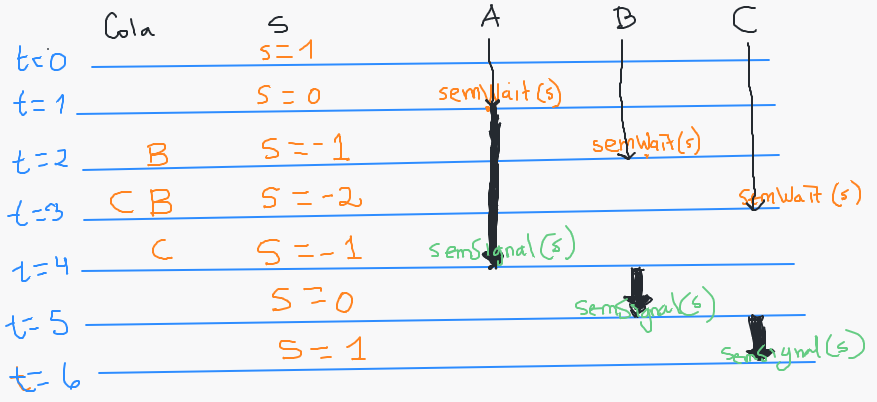 Cola S A B C
t=0 s=1
t=1 S=0 semWait(s)
t=2 B S=-1 semWait(s)
t=3 C B S=-2 semWait(s)
t=4 C S=-1 semSignal(s)
t=5 S=0 semSignal(s)
t=6 S=1 semSignal(s)